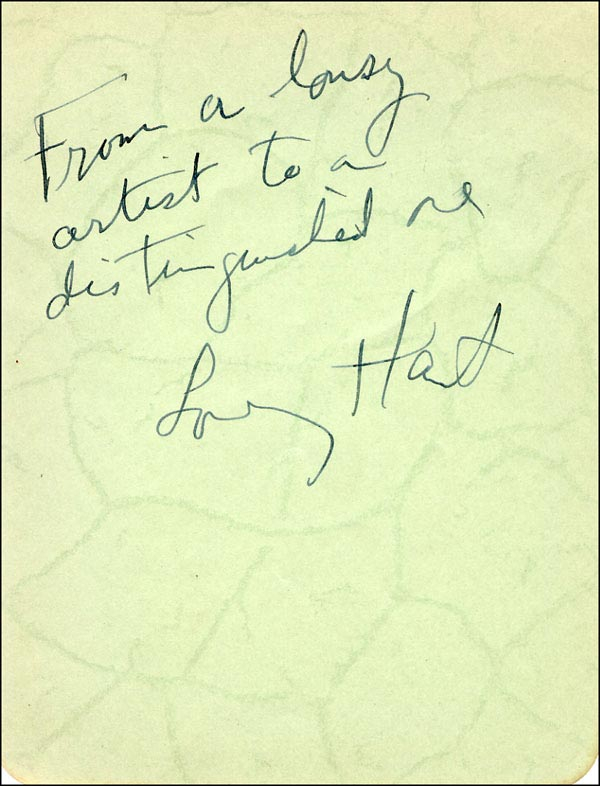 From a lousy
artist to a
distinguished one
Lorry Hart